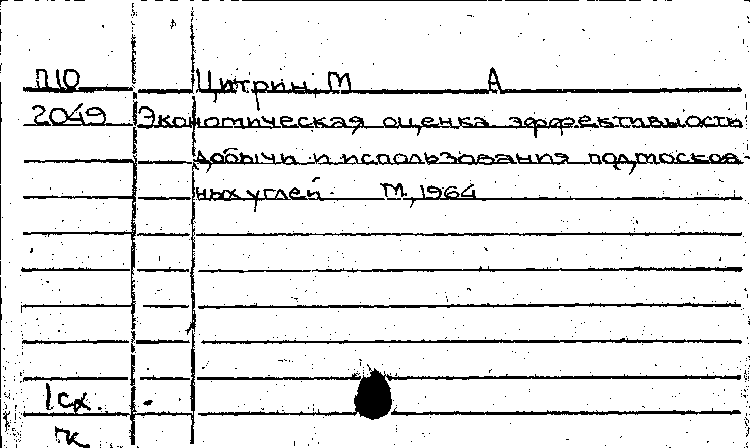 П10 Цитрин, М А
2049 Экономическая оценка эффективность
добычи и использования подмосков-
ных углей. М., 1964
1 сх. -